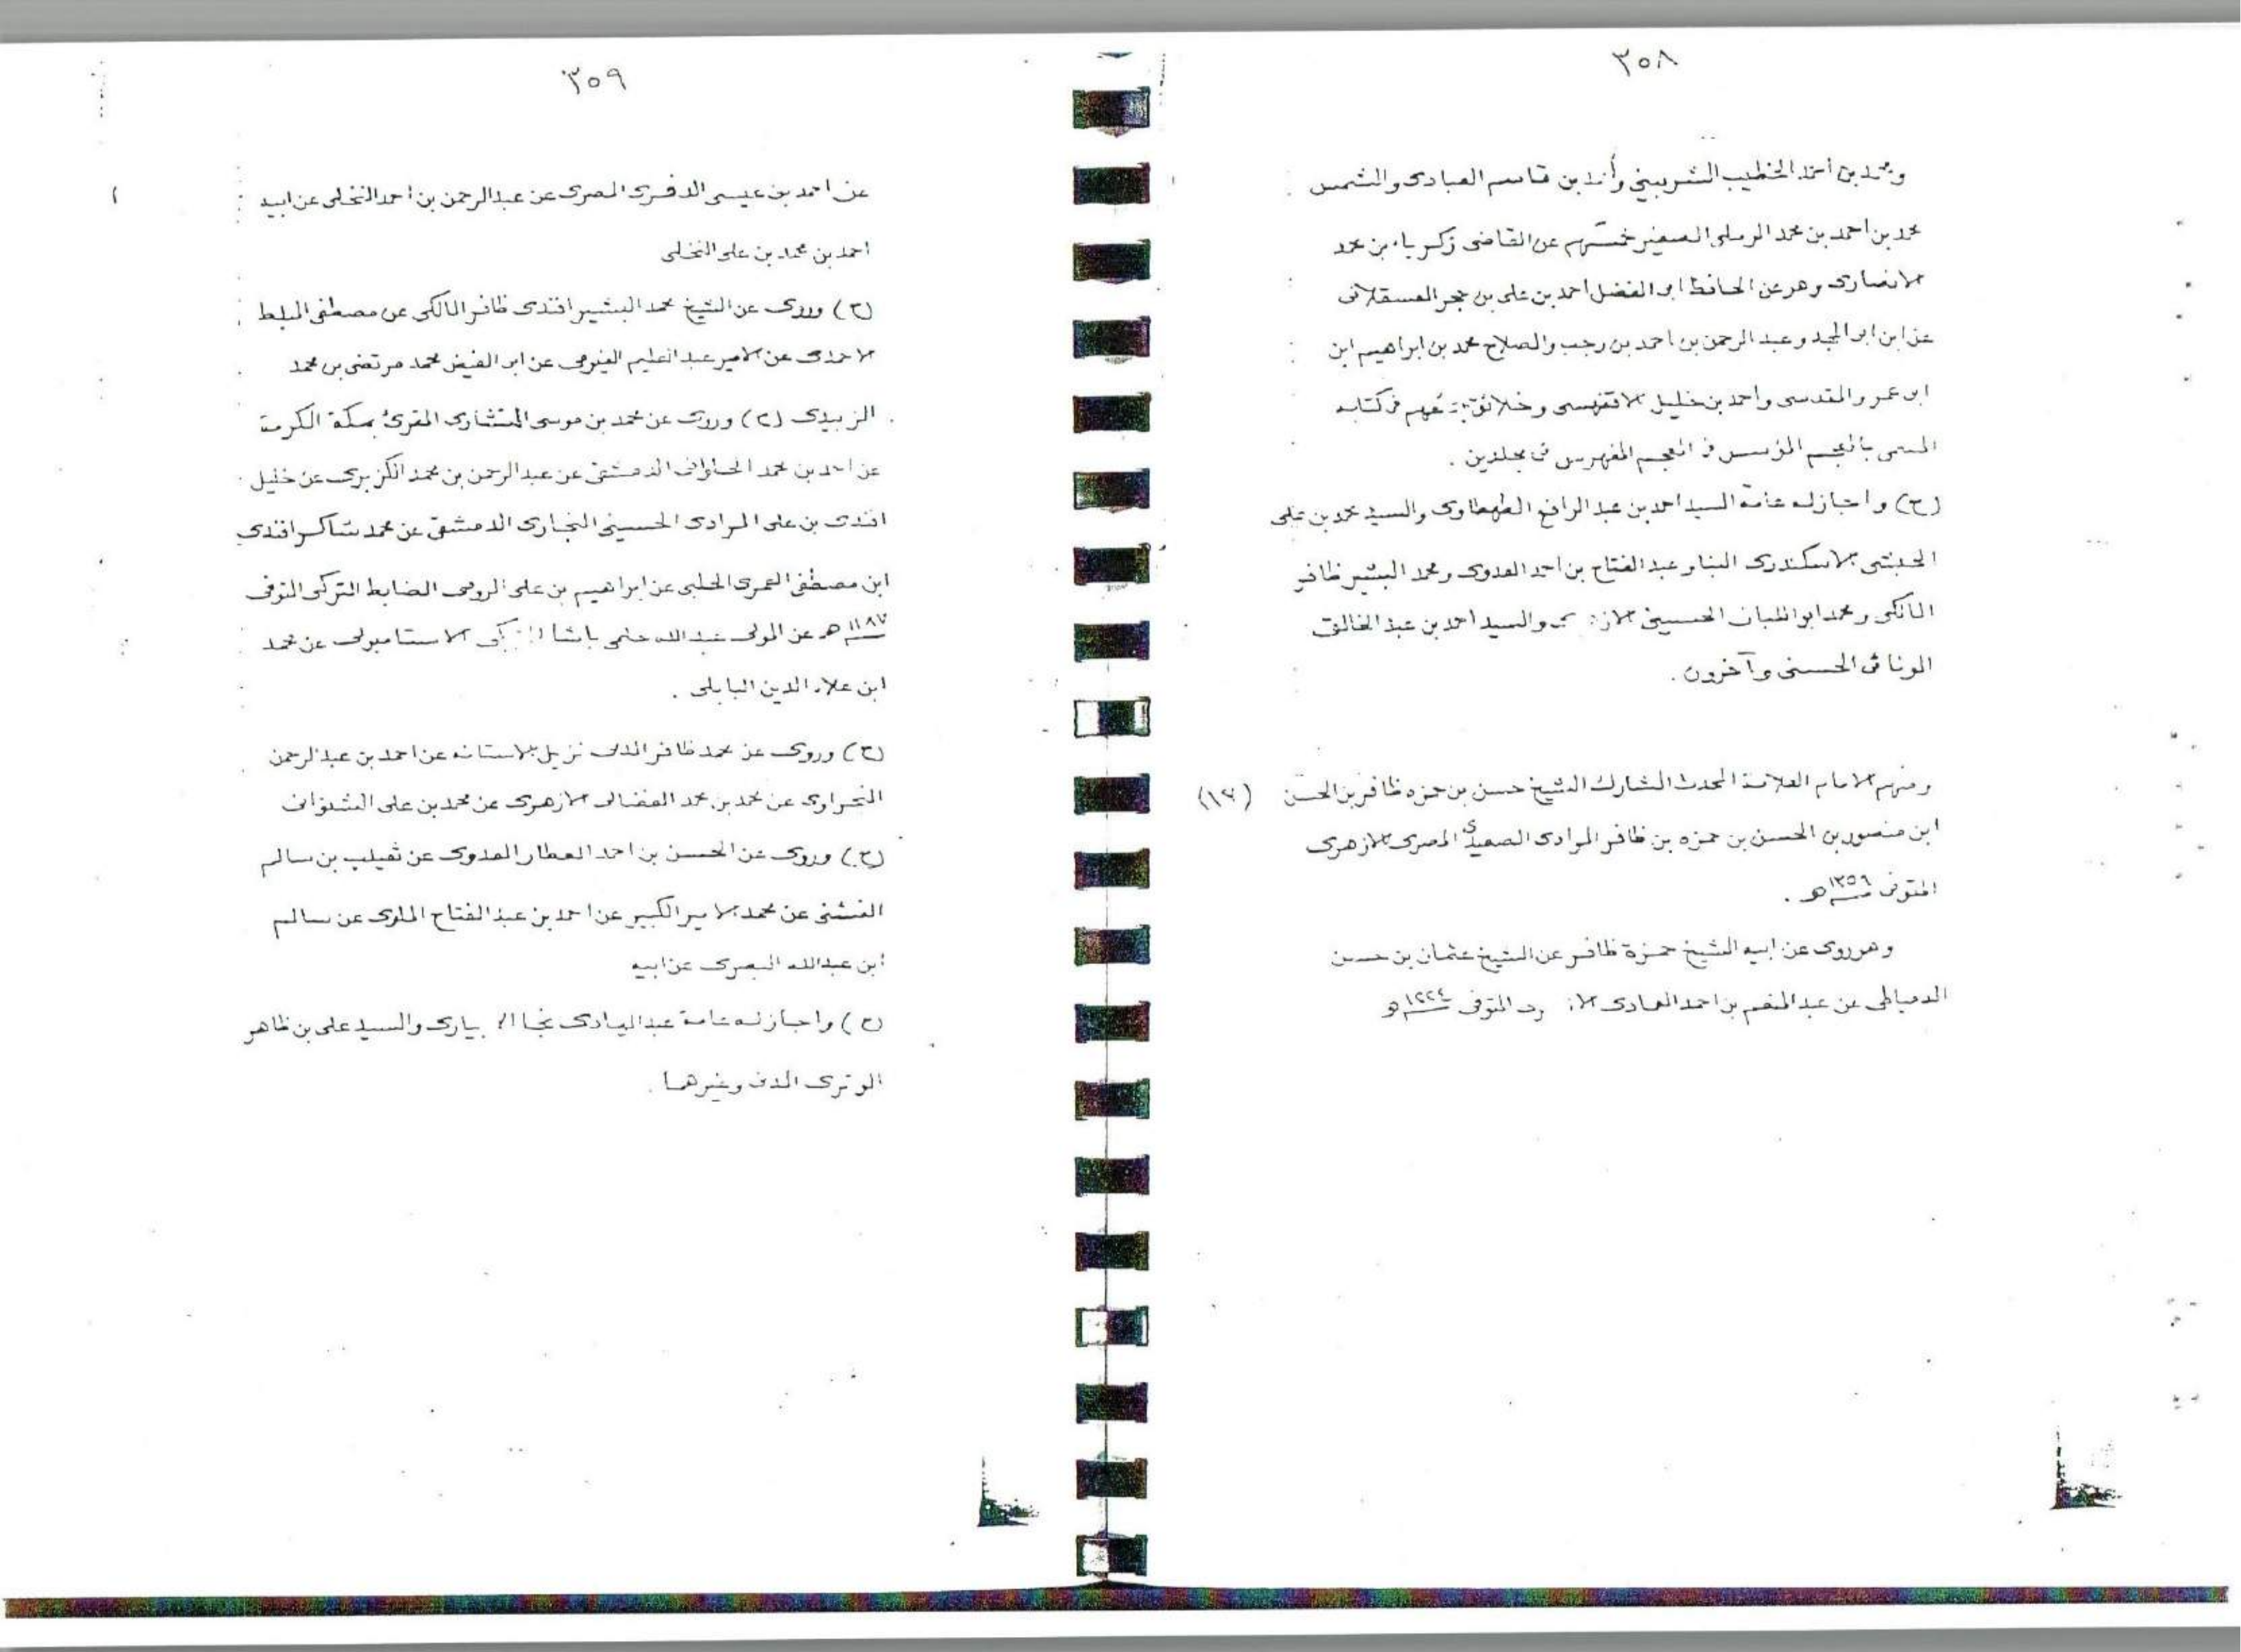 ٣٥٨
ومحمد بن احمد الخطيب الشربيني وأحمد بن قاسم العبادى والشمس
محمد بن احمد بن محمد الرملى الصغير خمستهم عن القاضى زكرياء بن محمد
الانصارى وهو عن الحافظ ابو الفضل احمد بن على بن حجر العسقلانى
عن ابن ابو المجد وعبد الرحمن بن احمد بن رجب والصلاح محمد بن ابراهيم ابن
ابو عمر والمقدسى واحمد بن خليل الاقفهسى وخلائق فى كتابه
المسمى بالمجمع المؤسس فى المعجم المفهرس فى مجلدين .
(ح) واجازله عامة السيد احمد بن عبد الرافع الطهطاوى والسيد محمد بن على
الحبشى الاسكندرى البنا وعبد الفتاح بن احمد العدوى ومحمد البشير ظافر
المالكى ومحمد ابو اللبان الحسينى والسيد احمد بن عبد الخالق
الونائى الحسنى وآخرون .
ومنهم الامام العلامة المحدث المشارك الشيخ حسن بن حمزه ظافر بن الحسن (١٢)
ابن منصور بن الحسن بن حمزه بن ظافر المرادى الصعيدى المصرى الازهرى
المتوفى ١٣٥٩هـ .
وهو روى عن ابيه الشيخ حمزة ظافر عن الشيخ عثمان بن حسن
الدمياطى عن عبد المنعم بن احمد العمادى المتوفى ١٢٢٤هـ
٣٥٩
عن احمد بن عيسى الدفرى المصرى عن عبد الرحمن بن احمد النخلى عن ابيه
احمد بن محمد بن على النخلى
(ح) وروى عن الشيخ محمد البشير افندى ظافر المالكى عن مصطفى المبلط
الاحمدى عن الامير عبد العليم الفيومى عن ابو الفيض محمد مرتضى بن محمد
الزبيدى (ح) وروى عن محمد بن موسى المنشارى المقرئ بمكة المكرمة
عن احمد بن محمد الحلوانى الدمشقى عن عبد الرحمن بن محمد الكزبرى عن خليل
افندى بن على المرادى الحسينى البخارى الدمشقى عن محمد شاكر افندى
ابن مصطفى العمرى الحلبى عن ابراهيم بن على الرومى الضابط التركى المتوفى
١١٨٧ هـ عن المولى عبد الله حلمى باشا الاستامبولى عن محمد
ابن علاء الدين البابلى .
(ح) وروى عن محمد ظافر المدنى نزيل الاستانه عن احمد بن عبد الرحمن
النحراوى عن محمد بن محمد الفضالى الازهرى عن محمد بن على الشنوانى
(ح) وروى عن الحسن بن احمد العطار العدوى عن ثعيلب بن سالم
الفشنى عن محمد الامير الكبير عن احمد بن عبد الفتاح الملوى عن سالم
ابن عبدالله البصرى عن ابيه
(ح) واجازله عامة عبد الهادى نجا الابيارى والسيد على بن ظاهر
الوترى المدنى وغيرهما .